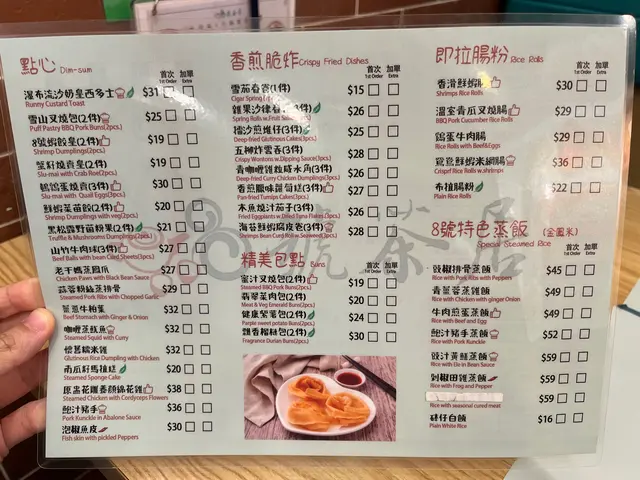 點心 Dim-sum
首次 加單
1st Order Extra
瀑布流沙奶皇西多士 $31
Runny Custard Toast
雪山叉燒包(2件) $25
Puff Pastry BBQ Pork Buns(2pcs.)
8號蝦餃皇(2件) $19
Shrimp Dumplings(2pcs.)
蟹籽燒賣皇(2件) $19
Siu-mai with Crab Roe(2pcs.)
鵪鶉蛋燒賣(3件) $30
Siu-mai with Quail Eggs(3pcs.)
鮮蝦菜苗餃(2件) $20
Shrimp Dumplings with veg(2pcs.)
黑松露野菌粉果(2件) $21
Truffle & Mushrooms Dumplings(2pcs.)
山竹牛肉球(3件) $27
Beef Balls with bean Curd Sheets(3pcs.)
老干媽蒸鳳爪 $27
Chicken Paws with Black Bean Sauce
蒜蓉粉絲蒸排骨 $29
Steamed Pork Ribs with Chopped Garlic
薑蔥牛柏葉 $32
Beef Stomach with Ginger & Onion
咖喱蒸魷魚 $32
Steamed Squid with Curry
懷舊糯米雞 $32
Glutinous Rice Dumpling with Chicken
南瓜籽馬拉糕 $20
Steamed Sponge Cake
$38
Steamed Chicken with Cordyceps Flowers
鮑汁豬手 $36
Pork Kunckle in Abalone Sauce
泡椒魚皮 $30
Fish skin with pickled Peppers
香煎脆炸 Crispy Fried Dishes
首次 加單
1st Order Extra
雪茄春卷(1件) $15
Cigar Spring
雜果沙律卷 $26
Spring Rolls w/Fruit Salad
流沙煎堆仔(3件) $25
Deep-fried Glutinous Cakes(3pcs.)
五柳炸雲吞(3件) $28
Crispy Wontons w.Dipping Sauce(3pcs.)
青咖喱雞粒咸水角(3件) $27
Deep-fried Curry Chicken Dumplings(3pcs.)
香煎臘味蘿蔔糕(3件) $26
Pan-fried Turnips Cakes(3pcs.)
木魚燒汁茄子(3件) $26
Fried Eggplants w/Dried Tuna Flakes(3pcs.)
海苔鮮蝦腐皮卷(3件) $28
Shrimps Bean Curd Roll w.Seaweed(3pcs.)
精美包點 Buns
首次 加單
1st Order Extra
蜜汁叉燒包(2件) $19
Steamed BBQ Pork Buns(2pcs.)
翡翠菜肉包(2件) $20
Meat & Veg Emerald Buns(2pcs.)
健康紫薯包(2件) $24
Purple sweet potato Buns(2pcs.)
飄香榴槤包(2件) $30
Fragrance Durian Buns(2pcs.)
即拉腸粉 Rice Rolls
首次 加單
1st Order Extra
香滑鮮蝦腸 $30
Shrimps Rice Rolls
溫室青瓜叉燒腸 $29
BBQ Pork Cucumber Rice Rolls
鴿蛋牛肉腸 $29
Rice Rolls with Beef&Eggs
鴛鴦鮮蝦米網腸 $36
Crispf Rice Rolls w.shrimps
布拉腸粉 $22
Plain Rice Rolls
8號特色蒸飯 (金鳳米)
Special Steamed Rice
首次 加單
1st Order Extra
豉椒排骨蒸飯 $49
Rice with Pork Ribs with Peppers
青薑蓉蒸雞飯 $49
Rice with Chicken with ginger Onion
牛肉煎蛋蒸飯 $49
Rice with Beef and Egg
鮑汁豬手蒸飯 $52
Rice with Pork Kunckle
豉汁黃鱔蒸飯 $59
Rice with Ele in Bean Sauce
剁椒田雞蒸飯 $59
Rice with Frog and Pepper
$59
Rice with seasional cured meat
砵仔白飯 $16
Plain White Rice
8號茶居